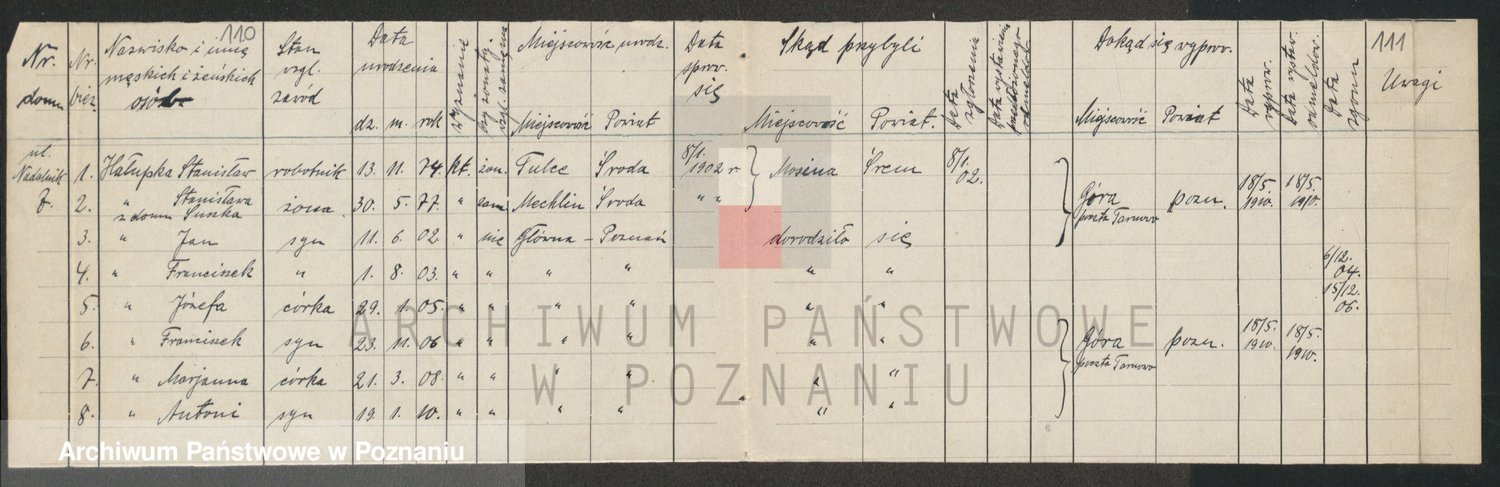 110
111
Nr. domu
Nr. bież.
Nazwisko i imię męskich i żeńskich osób
Stan wzgl. zawód
Data urodzenia
dz. m. rok
Wyznanie
czy żonaty wzgl. zamężna
Miejscowość urodz.
Miejscowość Powiat
Data sprow. się
Skąd przybyli
Miejscowość Powiat.
Data zgłoszenia
Data wystawienia
Dokąd się wyprow.
Miejscowość Powiat
Data wyprow.
Data wystaw. odmeldow.
Data zgonu
Uwagi
ul. Nadolnik 7.
1. Hałupka Stanisław robotnik 13. 11. 74. kt. żon. Tulce Środa 8/1. 1902 r Mosina Śrem 8/1. 02.
2. " Stanisława z domu Suszka żona. 30. 5. 77. " zam. Mechlin Środa " " Góra poczta Tarnowo pozn. 18/5. 1910. 18/5. 1910.
3. " Jan syn 11. 6. 02 " nie Główna - Poznań dorodziło się
4. " Franciszek " 1. 8. 03. " " " " " " 6/12. 04.
5. " Józefa córka 29. 1. 05. " " " " " " 15/12. 06.
6. " Franciszek syn 23. 11. 06 " " " " " " Góra poczta Tarnowo pozn. 18/5. 1910. 18/5. 1910.
7. " Marjanna córka 21. 3. 08. " " " " " "
8. " Antoni syn 19. 1. 10. " " " " " "
ARCHIWUM PAŃSTWOWE
W POZNANIU
Archiwum Państwowe w Poznaniu